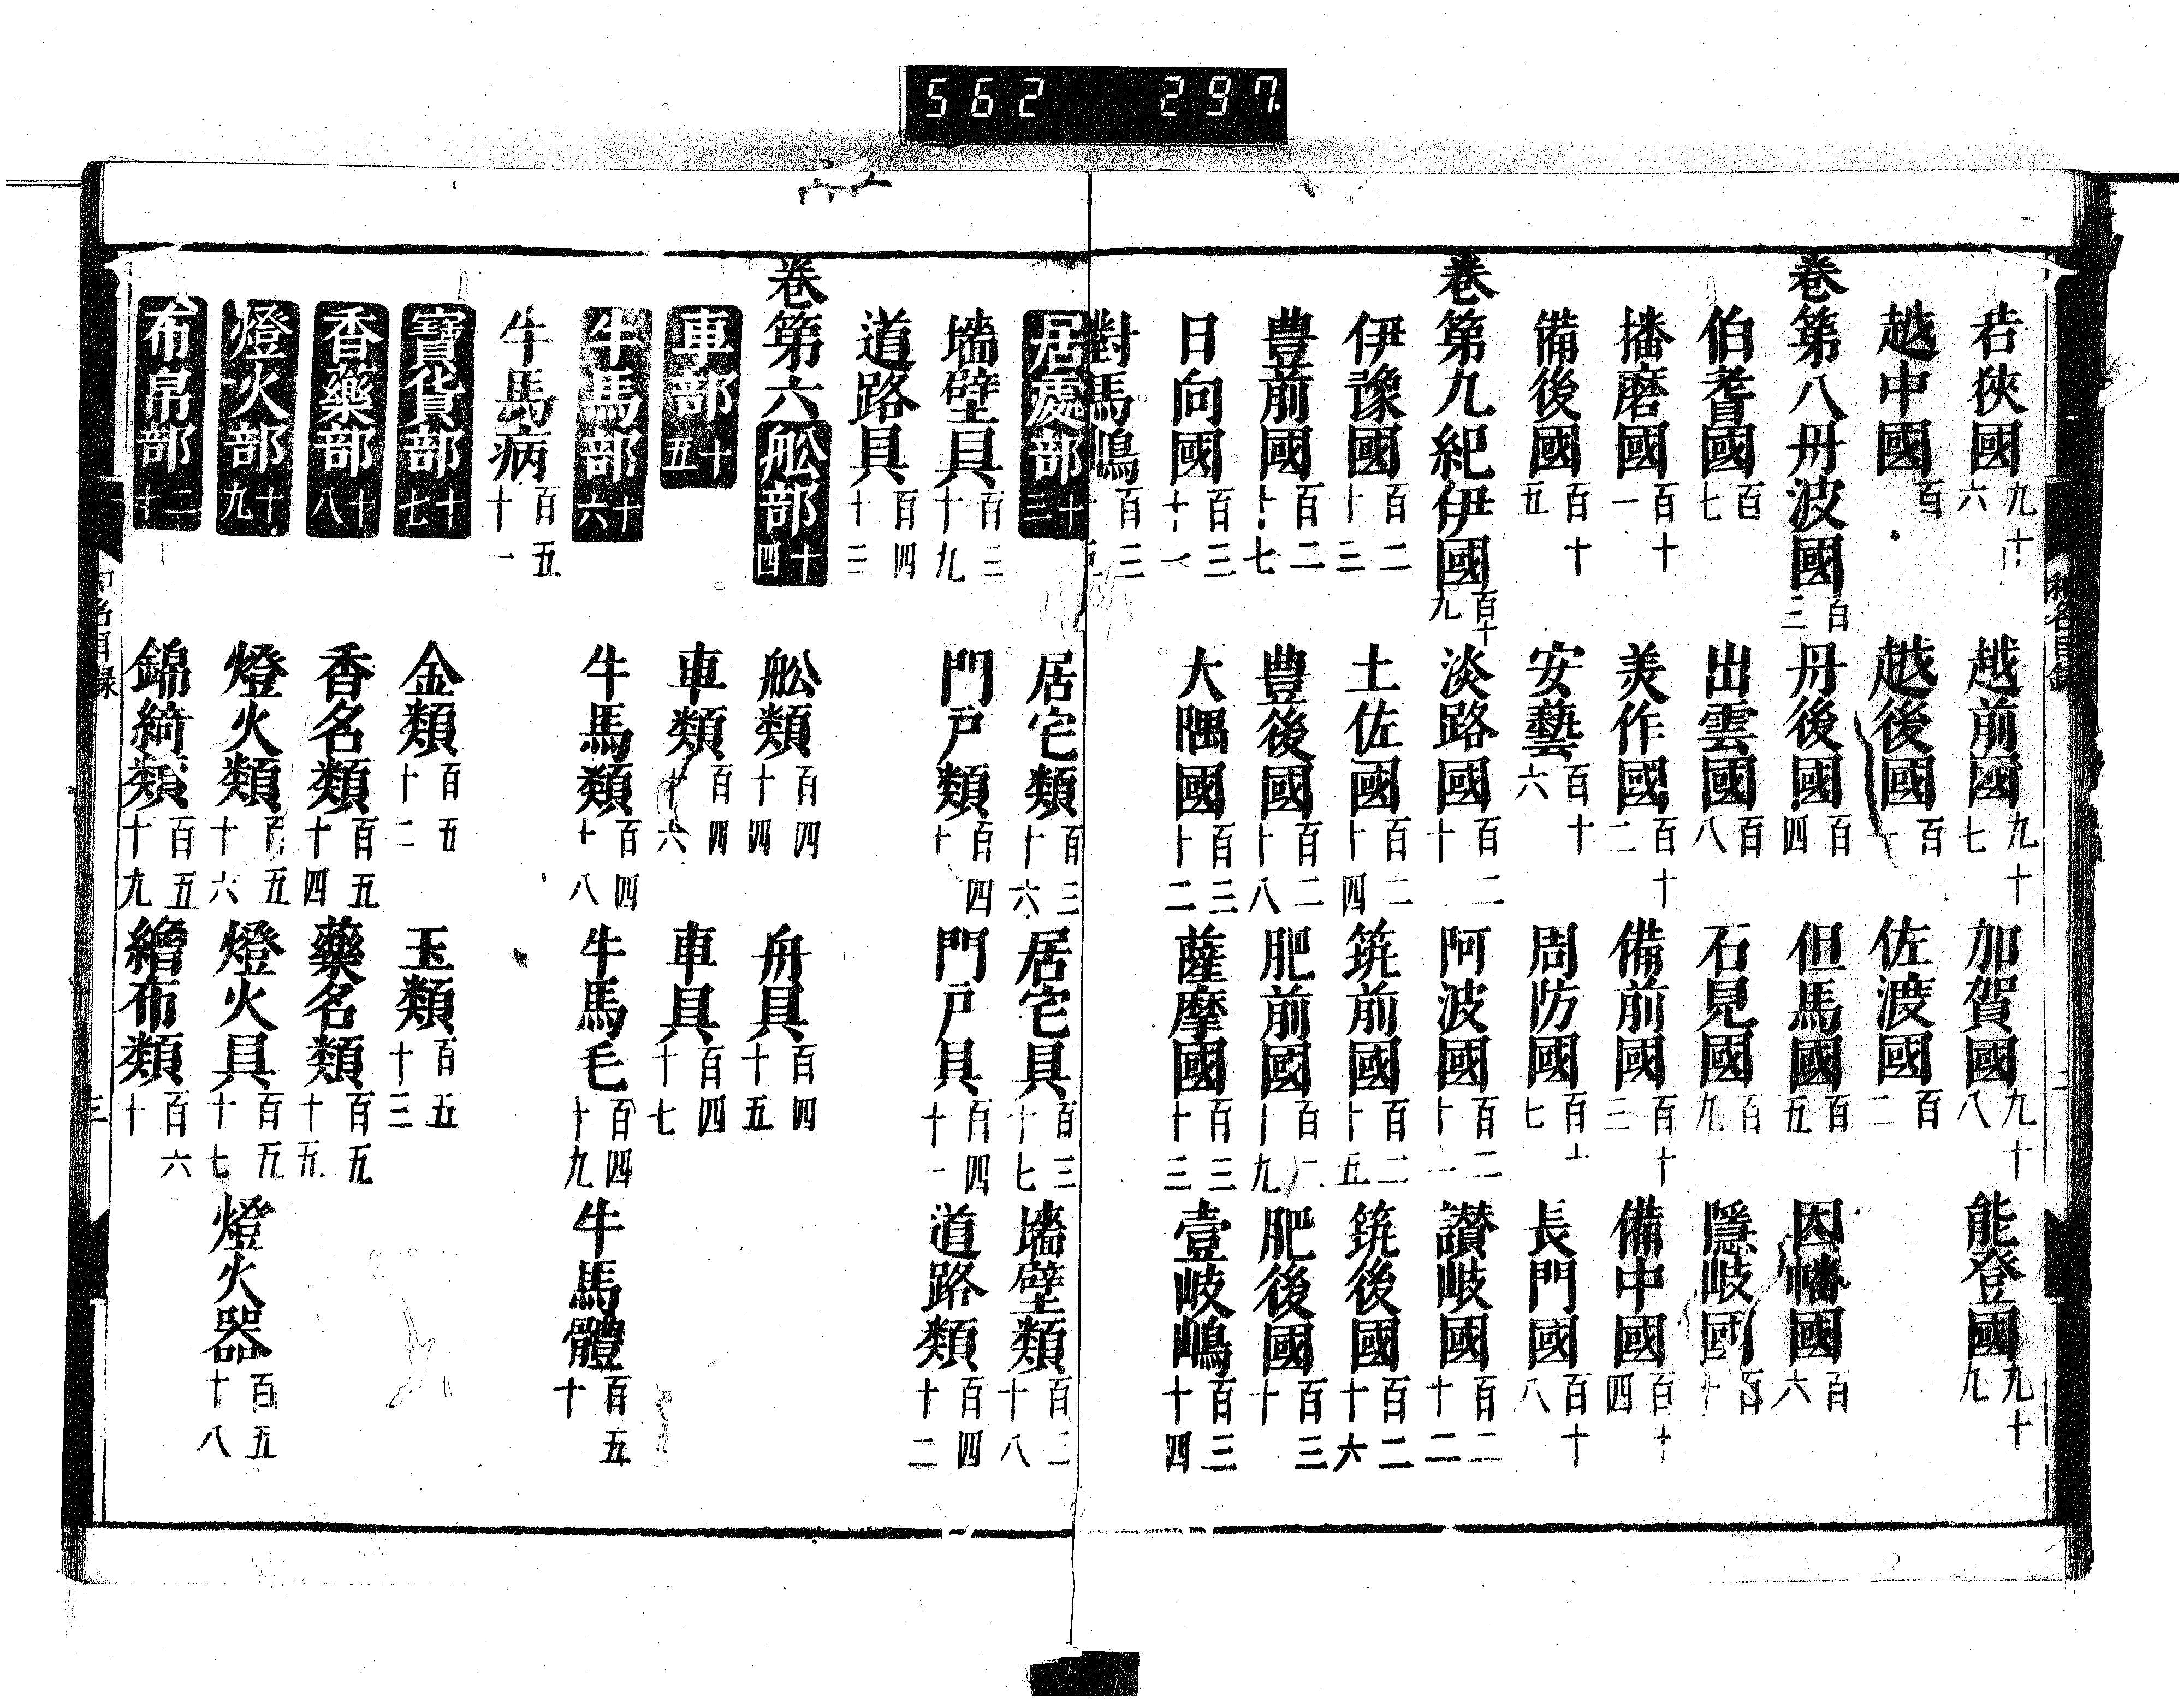 562 297
若狹國九十六 越前國九十七 加賀國九十八 能登國九十九
越中國百 越後國百一 佐渡國百二
卷第八丹波國百三 丹後國百四 但馬國百五 因幡國百六
伯耆國百七 出雲國百八 石見國百九 隱岐國百十
播磨國百十一 美作國百十二 備前國百十三 備中國百十四
備後國百十五 安藝百十六 周防國百十七 長門國百十八
卷第九紀伊國百十九 淡路國百二十 阿波國百二十一 讃岐國百二十二
伊豫國百二十三 土佐國百二十四 筑前國百二十五 筑後國百二十六
豊前國百二十七 豊後國百二十八 肥前國百二十九 肥後國百三十
日向國百三十一 大隅國百三十二 薩摩國百三十三 壹岐嶋百三十四
對馬嶋百三十五
居處部十三 居宅類百三十六 居宅具百三十七 墻壁類百三十八
墻壁具百三十九 門戸類百四十 門戸具百四十一 道路類百四十二
道路具百四十三
卷第六舩部十四 舩類百四十四 舟具百四十五
車部十五 車類百四十六 車具百四十七
牛馬部十六 牛馬類百四十八 牛馬毛百四十九 牛馬體百五十
牛馬病百五十一
寶貨部十七 金類百五十二 玉類百五十三
香藥部十八 香名類百五十四 藥名類百五十五
燈火部十九 燈火類百五十六 燈火具百五十七 燈火器百五十八
布帛部二十 錦綺類百五十九 繒布類百六十
三